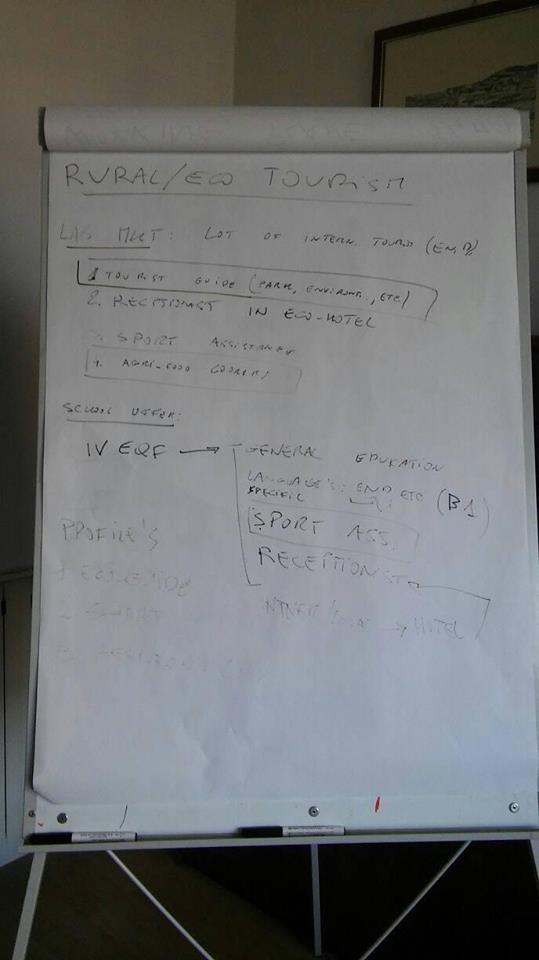 RURAL/ECO TOURISM
LAB MKT: LOT OF INTERN. TOURIS (ENG)
1 TOURIST GUIDE (PARK, ENVIRONM., ETC.)
2. RECEPTIONIST IN ECO-HOTEL
3. SPORT ASSISTANT
4. AGRI-FOOD
SCHOOL OFFER:
IV EQF → GENERAL EDUKATION
LANGUAGE'S: ENG ETC (B1)
SPECIFIC
SPORT ASS.
RECEPTIONIST
→ HOTEL
PROFILE'S
1
2 SPORT
3